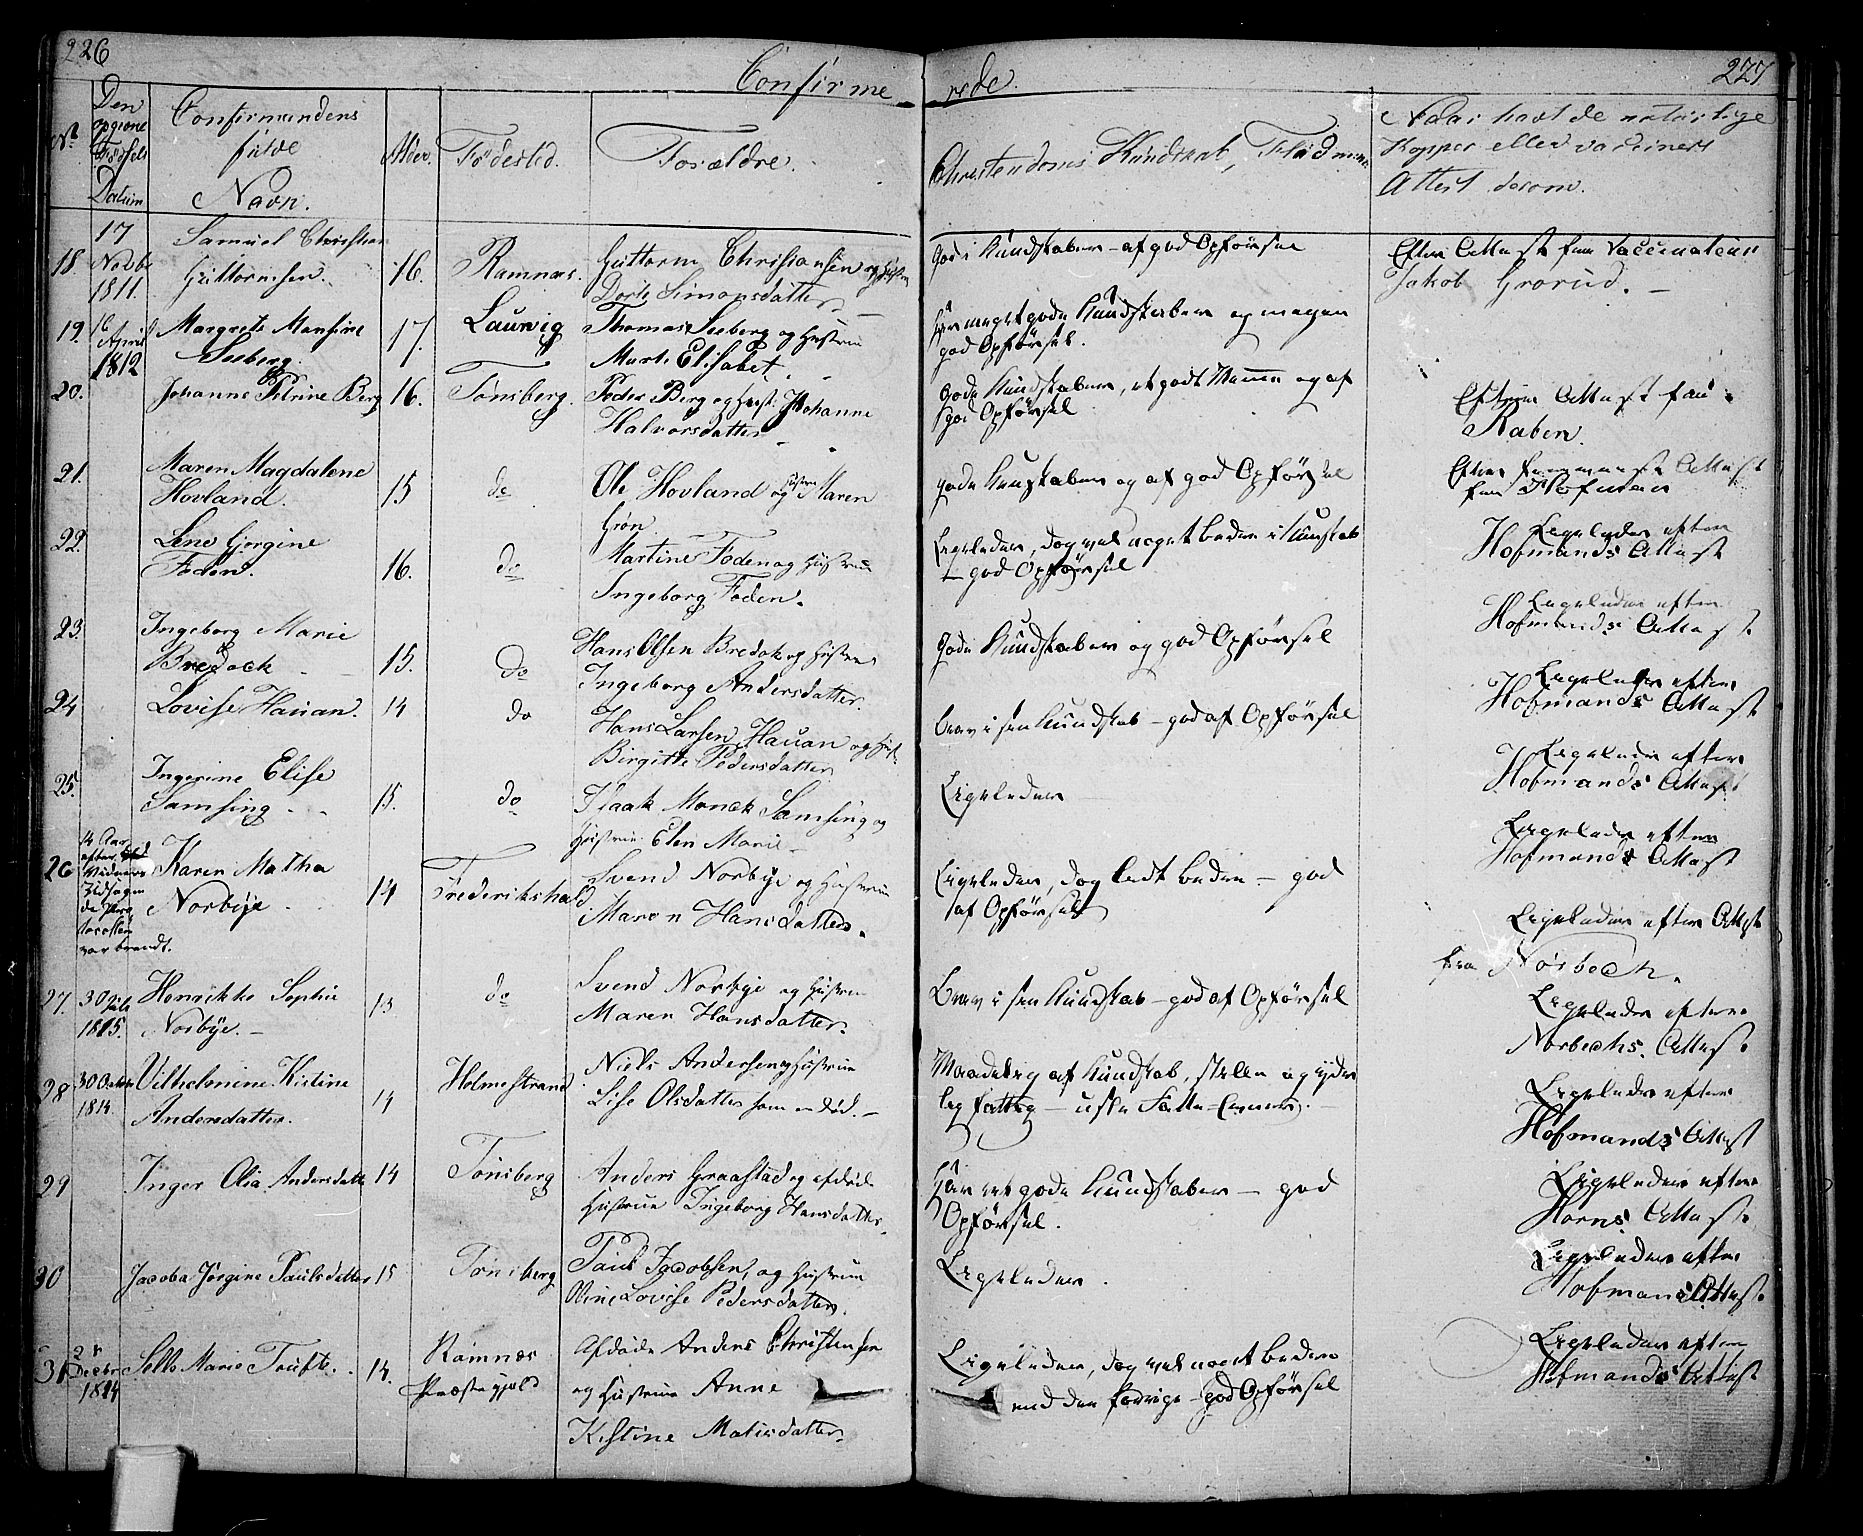 226
Confirme
rede.
227
No
Den
opgivne
Fødsels
Datum
Confirmandens
fulde
Navn.
Alder.
Fødested.
Forældre.
Christendoms Kundskab, Flid
Naar havt de naturlige
Kopper eller vaccineret
Attest derom.
18
17
Novbr
1811.
Samuel Christian
Guttormsen.
16.
Ramnæs.
Guttorm Christiansen og Hustru
Dorte Simonsdatter
God i Kundskaber - af god Opførsel
Efter Attest fra Vaccinateur
Jakob Grorud. -
19.
16
April
1812
Margrete Monsine
Seeberg.
17.
Laurvig
Thomas Seeberg og Hustrue
Marte Elisabet.
Har meget gode Kundskaber og megen
god Opførsel.
20.
Johanne Petrine Berg
16.
Tønsberg.
Peder Berg og Hust. Johanne
Halvorsdatter
gode Kundskaber, et godt Nemme og af
god Opførsel
Efter Attest fra
Raben.
21.
Maren Magdalene
Hovland.
15
do
Ole Hovland og Hustru Maren
Grøn
gode Kunskaber og af god Opførsel
Efter Attest
fra Hofman
22.
Lene Gorgine
Foden.
16.
do
Martine Foden og Hustrue
Ingeborg Foden.
Ligeledes, dog vel noget bedre i Kunskab
- god Opførsel
Ligeledes efter
Hofmands Attest
23.
Ingeborg Marie
Bredock
15.
Do
Hans Olsen Bredok og Hustrue
Ingeborg Andersdatter.
gode Kundskaber og god Opførsel
Ligeledes efter
Hofmands Attest
24
Lovise Hauan.
14
do
Hans Larsen Hauan og Hust.
Birgitte Pedersdatter
brav i sin Kundskab - god af Opførsel
Ligeledes efter
Hofmands Attest
25.
Ingerine Elise
Samsing
15.
do
Isaak Monck Samsing og
Hustrue Elen Marie -
Ligeledes
Ligeledes efter
Hofmands Attest
26
14 Aar
efter
Vidners
Udsagn
da Pro
tocollen
var brendt.
Karen Matha
Norbye.
14
Frederikshald
Svend Norbye og Hustrue
Maren Hansdatter.
Ligeledes, dog lidt bedre - god
af Opførsel
Ligeledes efter
Hofmands Attest
Ligeledes efter Attest
fra Norbech.
27.
30 Juli
1815.
Henrikke Sophie
Norbye. -
13
do
Svend Norbye og Hustrue
Maren Hansdatter.
Brav i sin Kundskab - god af Opførsel
Ligeledes efter
Norbechs. Attest
28
30 Octbr
1814.
Vilhelmine Kistine
Andersdatter.
14
Holmestrand
Niels Andersen og Hustrue
Lise Olsdatter som er død. -
Maadelig af Kundskab, stille og
Ligeledes efter
Hofmands Attest
29
Inger Olia Andersdatter
14
Tønsberg
Anders Graastad og afdøde
Hustrue Ingeborg Hansdatter
Har ret gode Kundskaber - god
Opførsel.
Ligeledes efter
Horns Attest
30
Jacoba Jørgine Paulsdatter
15
Tønsberg
Paul Jacobsen, og Hustrue
Lovise Pedersdatter.
Ligeledes.
Ligeledes efter
Hofmands Attest
31
2
Decbr
1814
Marie Toufte.
14.
Ramnæs
Præstegjeld
Afdøde Anders Christensen
og Hustrue Anne
Kistine Matisdatter.
Ligeledes, dog vel noget bedre
end den forrige - god Opførsel
Ligeledes efter
Hofmands Attest